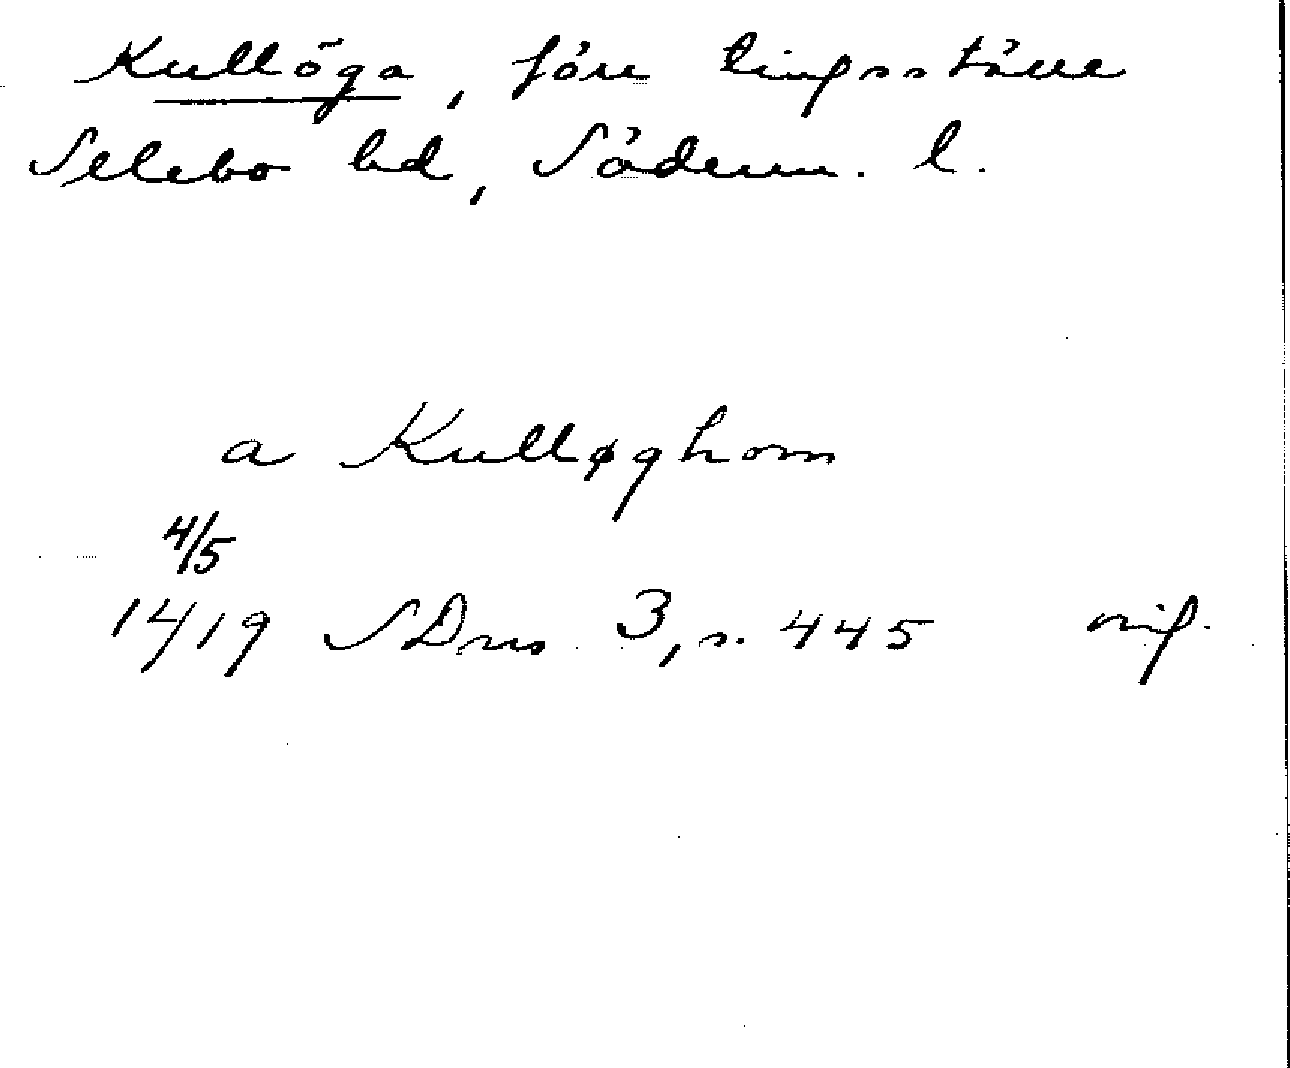 Kullöga, förr tingsställe
Selebo hd, Söderm. l.
a Kulløghom
4/5
1419 SDns 3, s. 445 orig.